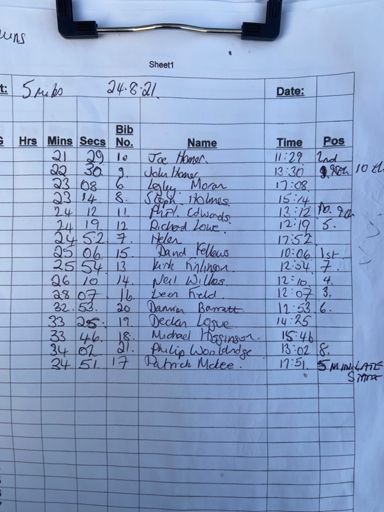 Sheet1
t: 5 miles 24.8.21. Date:
Hrs Mins Secs Bib No. Name Time Pos
21 29 10 Joe Homer 11:29 2nd
22 30 9. John Homer 13:30 10th
23 08 6 Lesley Moran 17:08
23 14 8. Steph Holmes 15:14
24 12 11. Phil Edwards 13:12 9th
24 19 12 Richard Lowe 12:19 5.
24 52 7. Helen 17:52
25 06 15. David Fellows 10:06 1st
25 54 13 Kirk 12:54 7.
26 10 14. Neil Wilkes 12:10 4.
28 07 16 Leon Field 12:07 3.
32. 53. 20 Damien Barratt 12:53 6.
33 25. 19. Declan Logue 14:25
33 46. 18. Michael Higginson 15:46
34 02 21. Philip Wooldridge 13:02 8.
34 51. 17 Patrick McKee. 17:51. 5 MIN LATE
START